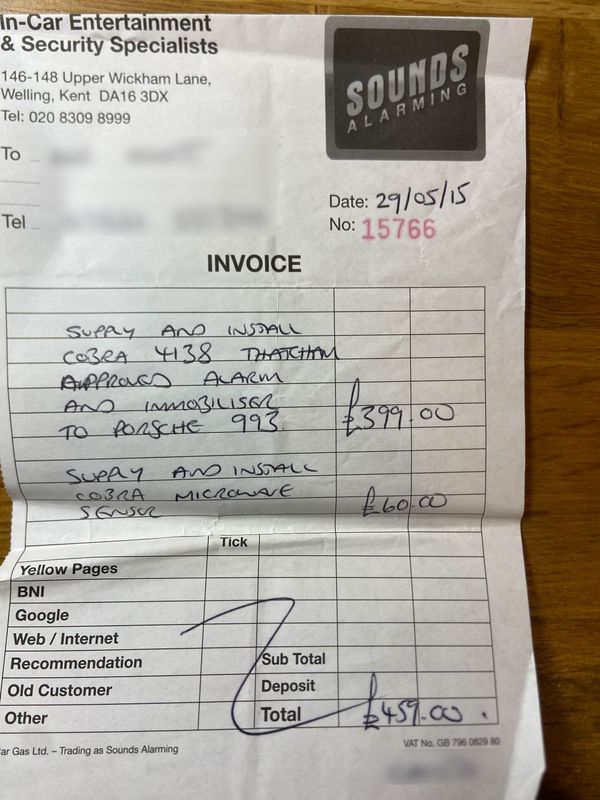 In-Car Entertainment
& Security Specialists
146-148 Upper Wickham Lane,
Welling, Kent DA16 3DX
Tel: 020 8309 8999
SOUNDS
ALARMING
To
Tel
Date: 29/05/15
No: 15766
INVOICE
SUPPLY AND INSTALL
COBRA 4138 THATCHAM
APPROVED ALARM
AND IMMOBILISER
TO PORSCHE 993. £399.00
SUPPLY AND INSTALL
COBRA MICROWAVE
SENSOR £60.00
Tick
Yellow Pages
BNI
Google
Web / Internet
Recommendation Sub Total
Old Customer Deposit
Other Total £459.00.
Car Gas Ltd. – Trading as Sounds Alarming
VAT No. GB 796 0829 80